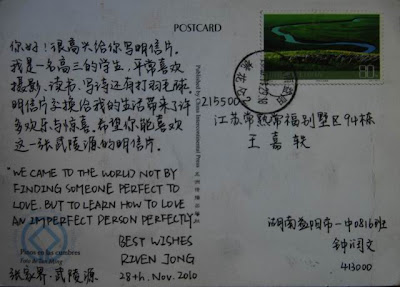 POSTCARD
你好！很高兴给你写明信片。
我是一名高三的学生，平常喜欢
摄影、读书、写诗还有打羽毛球。
明信片交换给我的生活带来了许
多欢乐与惊喜。希望你能喜欢
这一张武陵源的明信片。
"WE CAME TO THE WORLD NOT BY
FINDING SOMEONE PERFECT TO
LOVE. BUT TO LEARN HOW TO LOVE
AN IMPERFECT PERSON PERFECTLY.
BEST WISHES
RIVEN JONG
张家界·武陵源 28th. Nov. 2010
Pinos en las cumbres
Published by China Intercontinental Press
80
215500
江苏常熟常福别墅区94栋
王嘉轶
湖南益阳市一中0816班
钟闰文
413000